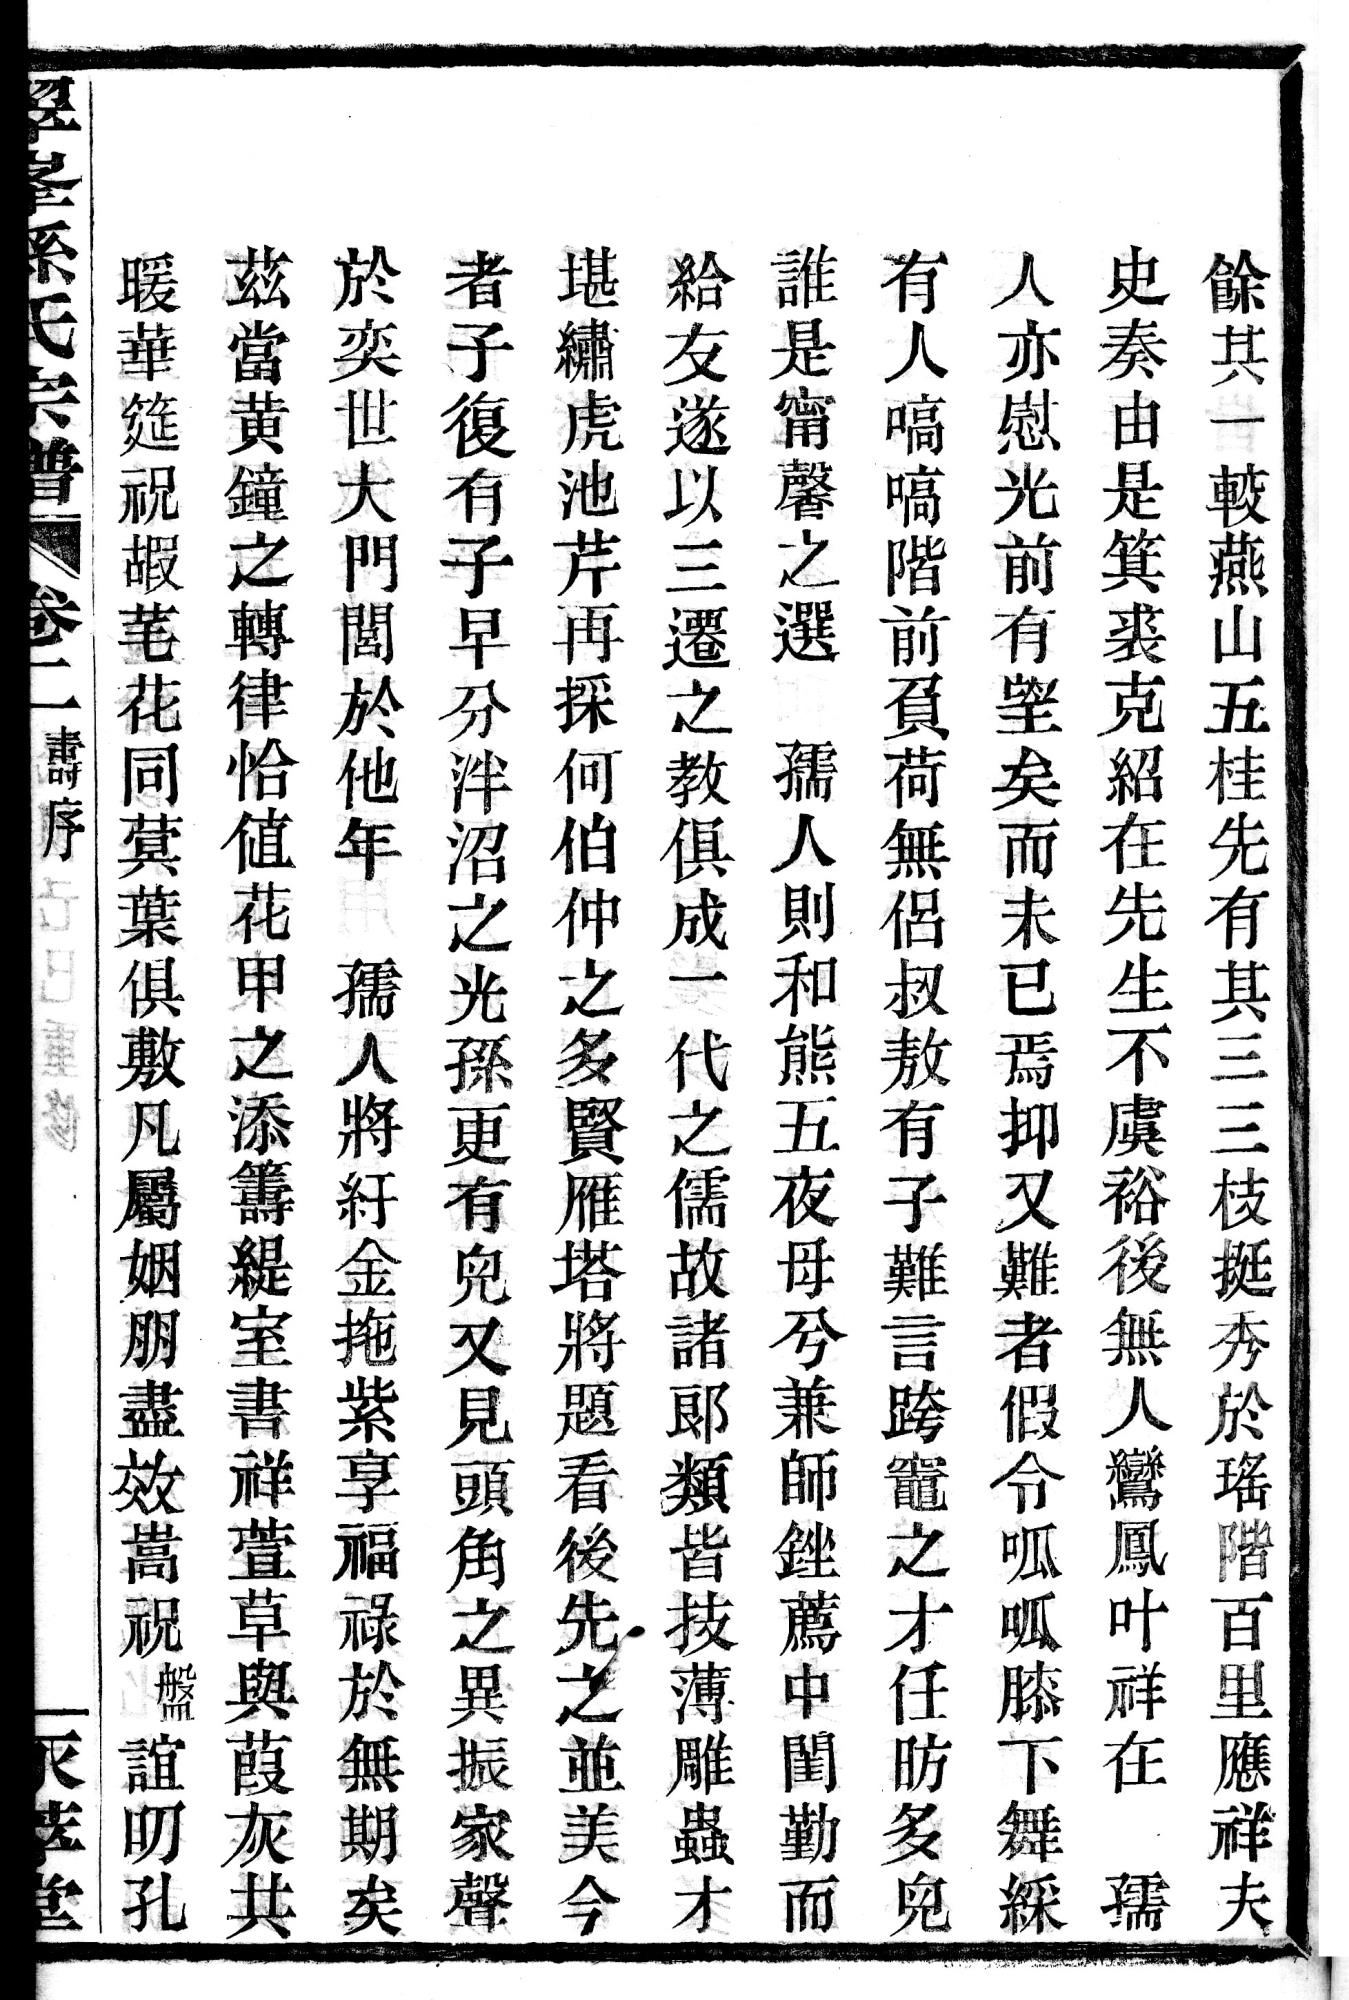 餘其一較燕山五桂先有其三三枝挺秀於瑤階百里應祥夫
史奏由是箕裘克紹在先生不虞裕後無人鸞鳳叶祥在　孺
人亦慰光前有望矣而未已焉抑又難者假令呱呱膝下舞綵
有人嗃嗃階前負荷無侶叔敖有子難言跨竈之才任昉多兒
誰是甯馨之選　孺人則和熊五夜母兮兼師銼薦中閨勤而
給友遂以三遷之教俱成一代之儒故諸郎類皆技薄雕蟲才
堪繡虎池芹再採何伯仲之多賢雁塔將題看後先之並美今
者子復有子早分泮沼之光孫更有兒又見頭角之異振家聲
於奕世大門閭於他年　孺人將紆金拖紫享福祿於無期矣
茲當黃鐘之轉律恰值花甲之添籌緹室書祥萱草與葭灰共
暖華筵祝嘏萐花同蓂葉俱敷凡屬姻朋盡效嵩祝盤誼叨孔
翠峯孫氏宗譜　卷二　壽序　天孝堂